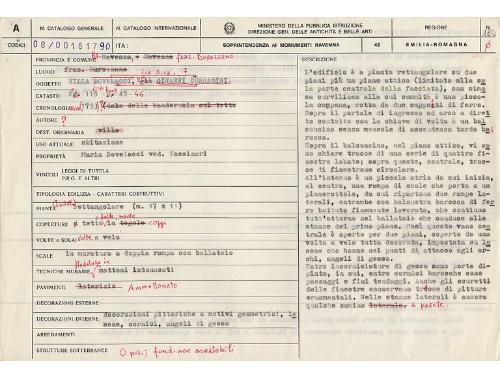 A
N. CATALOGO GENERALE
N. CATALOGO INTERNAZIONALE
MINISTERO DELLA PUBBLICA ISTRUZIONE
DIREZIONE GEN. DELLE ANTICHITÀ E BELLE ARTI
REGIONE
N.
CODICI
08/00161790
ITA:
SOPRINTENDENZA AI MONUMENTI RAVENNA
42
EMILIA-ROMAGNA
PROVINCIA E COMUNE
Ravenna - Ravenna
LUOGO
fraz.
OGGETTO
VILLA BOVELACCI, GIA GINANNI CORRADINI.
CATASTO
F° 115
45-46
CRONOLOGIA
1793
AUTORE
?
DEST. ORIGINARIA
villa
USO ATTUALE
abitazione
PROPRIETÀ
Maria Bovelacci ved. Tassinari
VINCOLI
LEGGI DI TUTELA
P.R.G. E ALTRI
TIPOLOGIA EDILIZIA - CARATTERI COSTRUTTIVI
PIANTA
rettangolare (m. 17 x 11)
COPERTURE
tetto, in tegole coppi
VOLTE o SOLAI
volte a vela
SCALE
in muratura a doppia rampa con ballatoio
TECNICHE MURARIE
mattoni intonacati
PAVIMENTI
laterizio Ammattonato
DECORAZIONI ESTERNE
DECORAZIONI INTERNE
decorazioni pittoriche a motivi geometrici, le
sene, cornici, angeli di gesso
ARREDAMENTI
STRUTTURE SOTTERRANEE
fond. non accertabili
DESCRIZIONE
L'edificio è a pianta rettangolare su due
piani più un piano attico (limitato alla so
la parte centrale della facciata), con cin
a civiliana alla cui sommità è una picco
la cuppana, retta da due supporti di ferro.
Sopra il portale di ingresso ad arco a diret
to contatto con la chiave di volta è un bal
concino senza mensole di ascendenza tardo ba
rocca.
Sopra il balconcino, nel piano attico, vi so
no chiare tracce di una serie di quattro fi
nestre labate; sopra queste, centrale, trac
ce 11 finestrone circolare.
All'interno è un piccolo atrio da cui inizia,
al centro, una rampa di scale che porta a un
pianerottolo, da cui ripartono due rampe la
terali, entrambe con balaustra barocca di fer
ro battuto finemente lavorata, che continua
tutt'attorno nel ballatoio che conduce alle
stanze del primo piano. Quasi questo vano cen
trale è aperto per due piani, coperto da una
volta a vela tutta decorata, impostata su le
sene che hanno nei punti di attacco agli ar
chi, angeli di gesso.
Entro incorniciature di gesso sono porte di
pinte, in cui, entro cornici barocche sono
paesaggi e fini tendaggi. Anche gli scuretti
delle finestre conservano tracce di pitture
ornamentali. Nelle stanze laterali è ancora
qualche camino laterale. a parete.